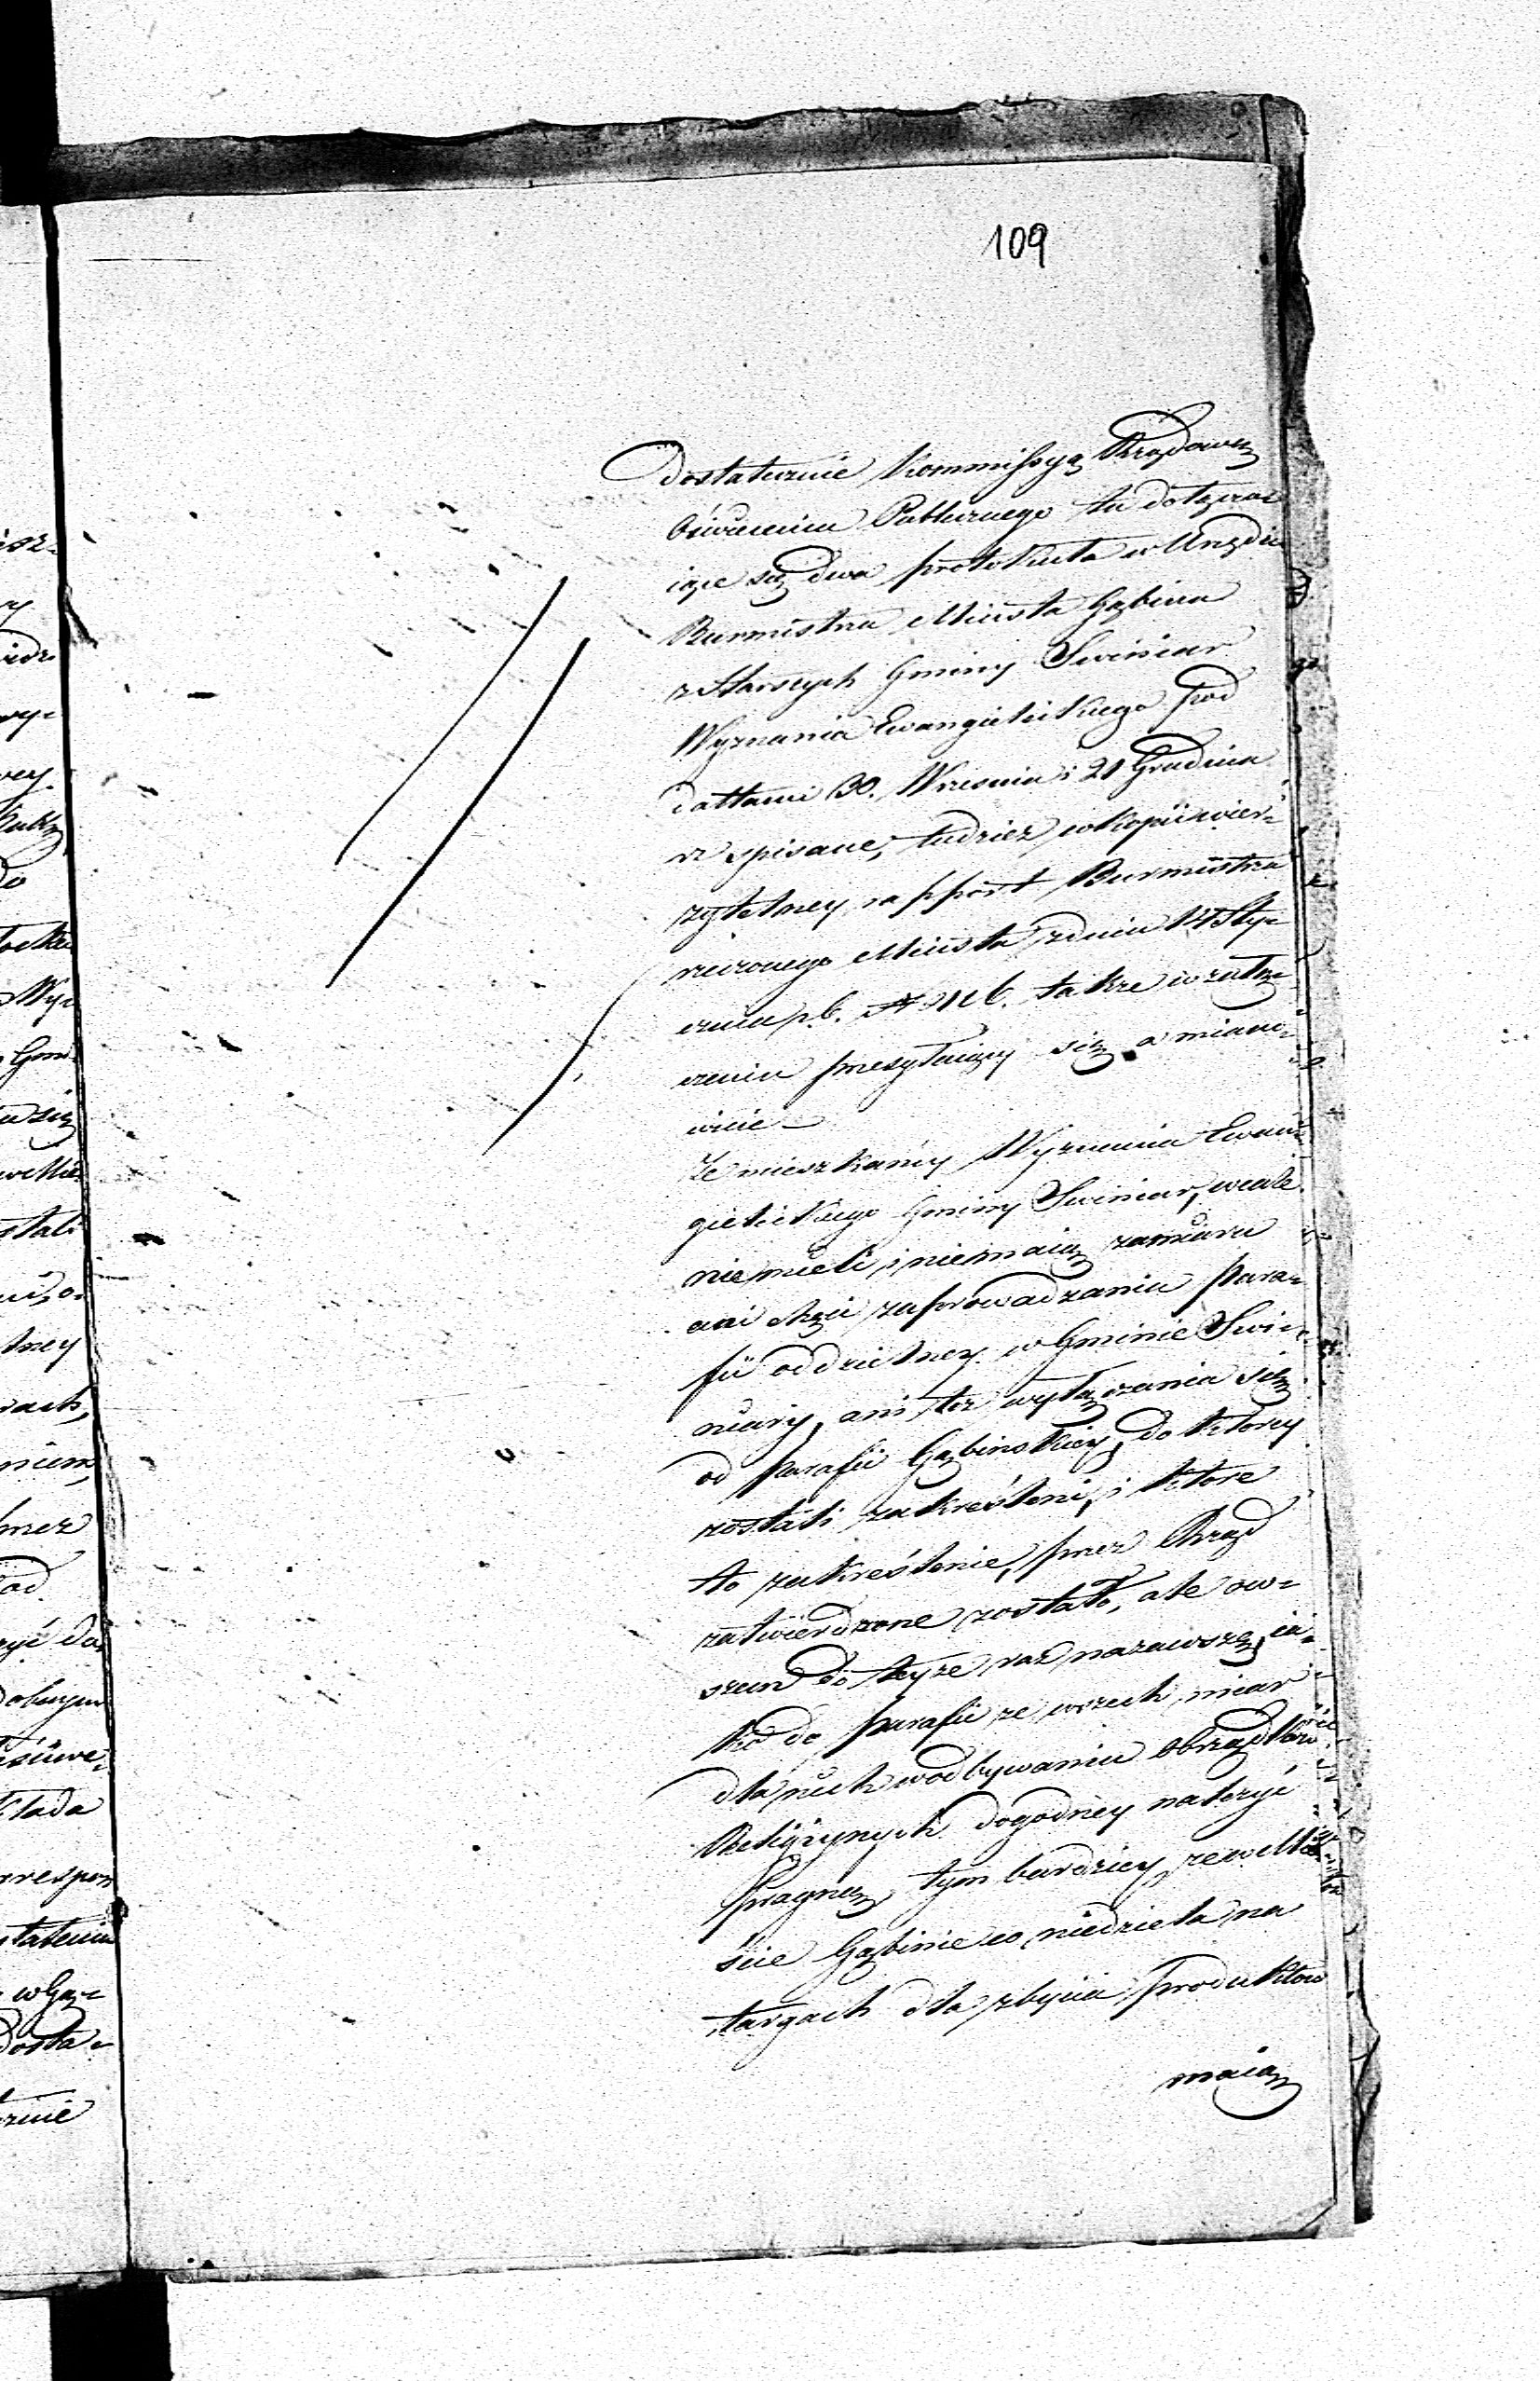 109
Dostatecznie Kommissyą Rządową
Oświecenia Publicznego tu dołącza-
iące się dwa protokuła w Urzędzie
Burmistrza Miasta Gąbina
z Starszych Gminy Swiniar
Wyznania Ewangielickiego pod
dattami 30. Wrzesnia i 21 Grudnia
rz spisane, tudzież w kopii wier-
zytelney rapport Burmistrza
rzeczonego Miasta z dnia 14 Sty-
cznia r. b. także w załą-
czeniu przesyłaiący się a miano-
wicie
Ze mieszkańcy Wyznania Ewan-
gielickiego Gminy Swiniar, wcale
niemieli i niemaią zamiaru
ani chęci zaprowadzania para-
fii oddzielney w Gminie Swi-
niary, ani też wyłączenia się
od parafii Gąbinskiey, do ktorey
zostali zakreśleni, i ktore
to zakreślenie, przez Rząd
zatwierdzone zostało, ale ow-
szem do teyże raz nazawsze, ia-
ko do parafii ze wszech miar
dla nich w odbywaniu obrządków
Religiynych dogodney należyć
pragną, tym bardziey, ze w Mie-
ście Gąbinie co niedziela na
targach dla zbycia produktow
maią
isz-
wy-
wey
do
Wy-
Gmi-
stali
tney
rach,
niem,
przez
od
kłada
w Gą-
Dosta-
cznie